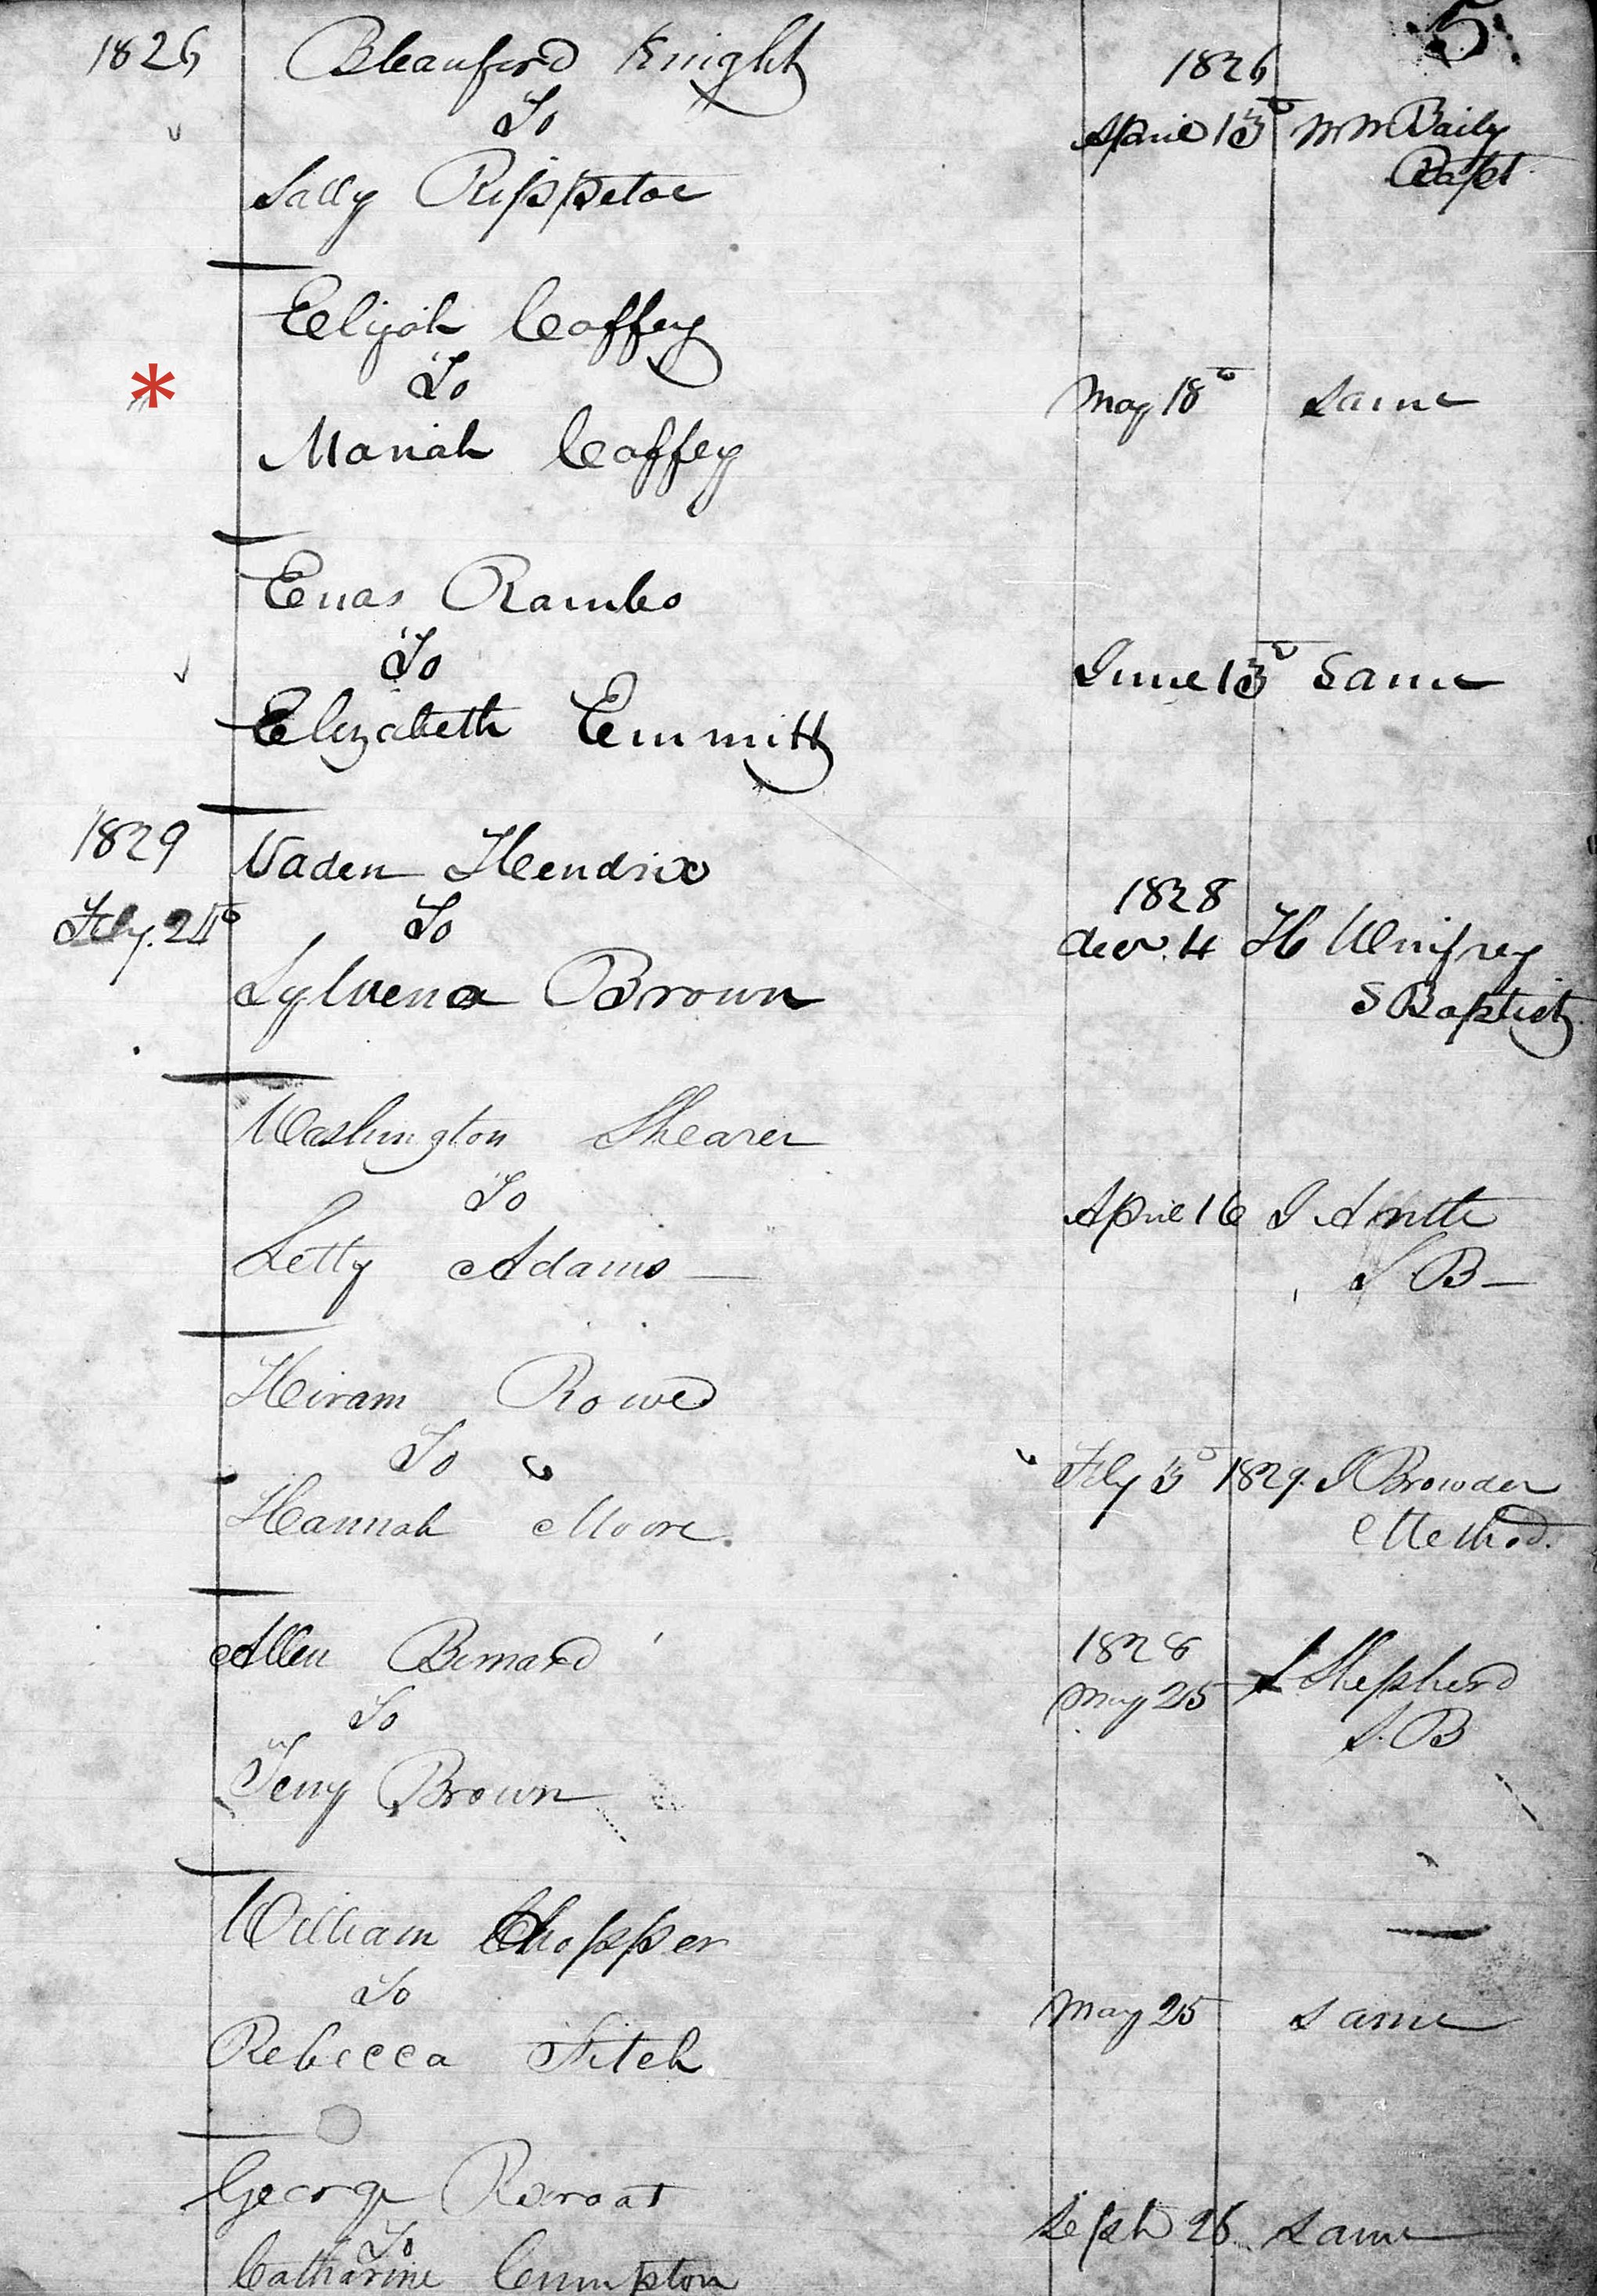 5
1826 Bleauford Knight 1826
To April 13th Wm Baily
Sally Rippetoe Bapt
Elijah Coffey
To May 18th Same
Mariah Coffey
Enas Rambo
To June 13th Same
Elizabeth Emmitt
1829 Vaden Hendrix 1828
Feby. 24th To decr. 4 H Winfrey
Sylvena Brown S Baptist
Washington Shearer
To April 16 J. Smith
Letty Adams S B
Hiram Rowe
To Feby 5th 1829. J Browder
Hannah Moore Method.
Allen Bernard 1828
To May 25 Shepherd
Jeny Brown S. B
William Chopper
To May 25 Same
Rebecca Fitch
George
To Sept 26 Same
Catharine Cumpton